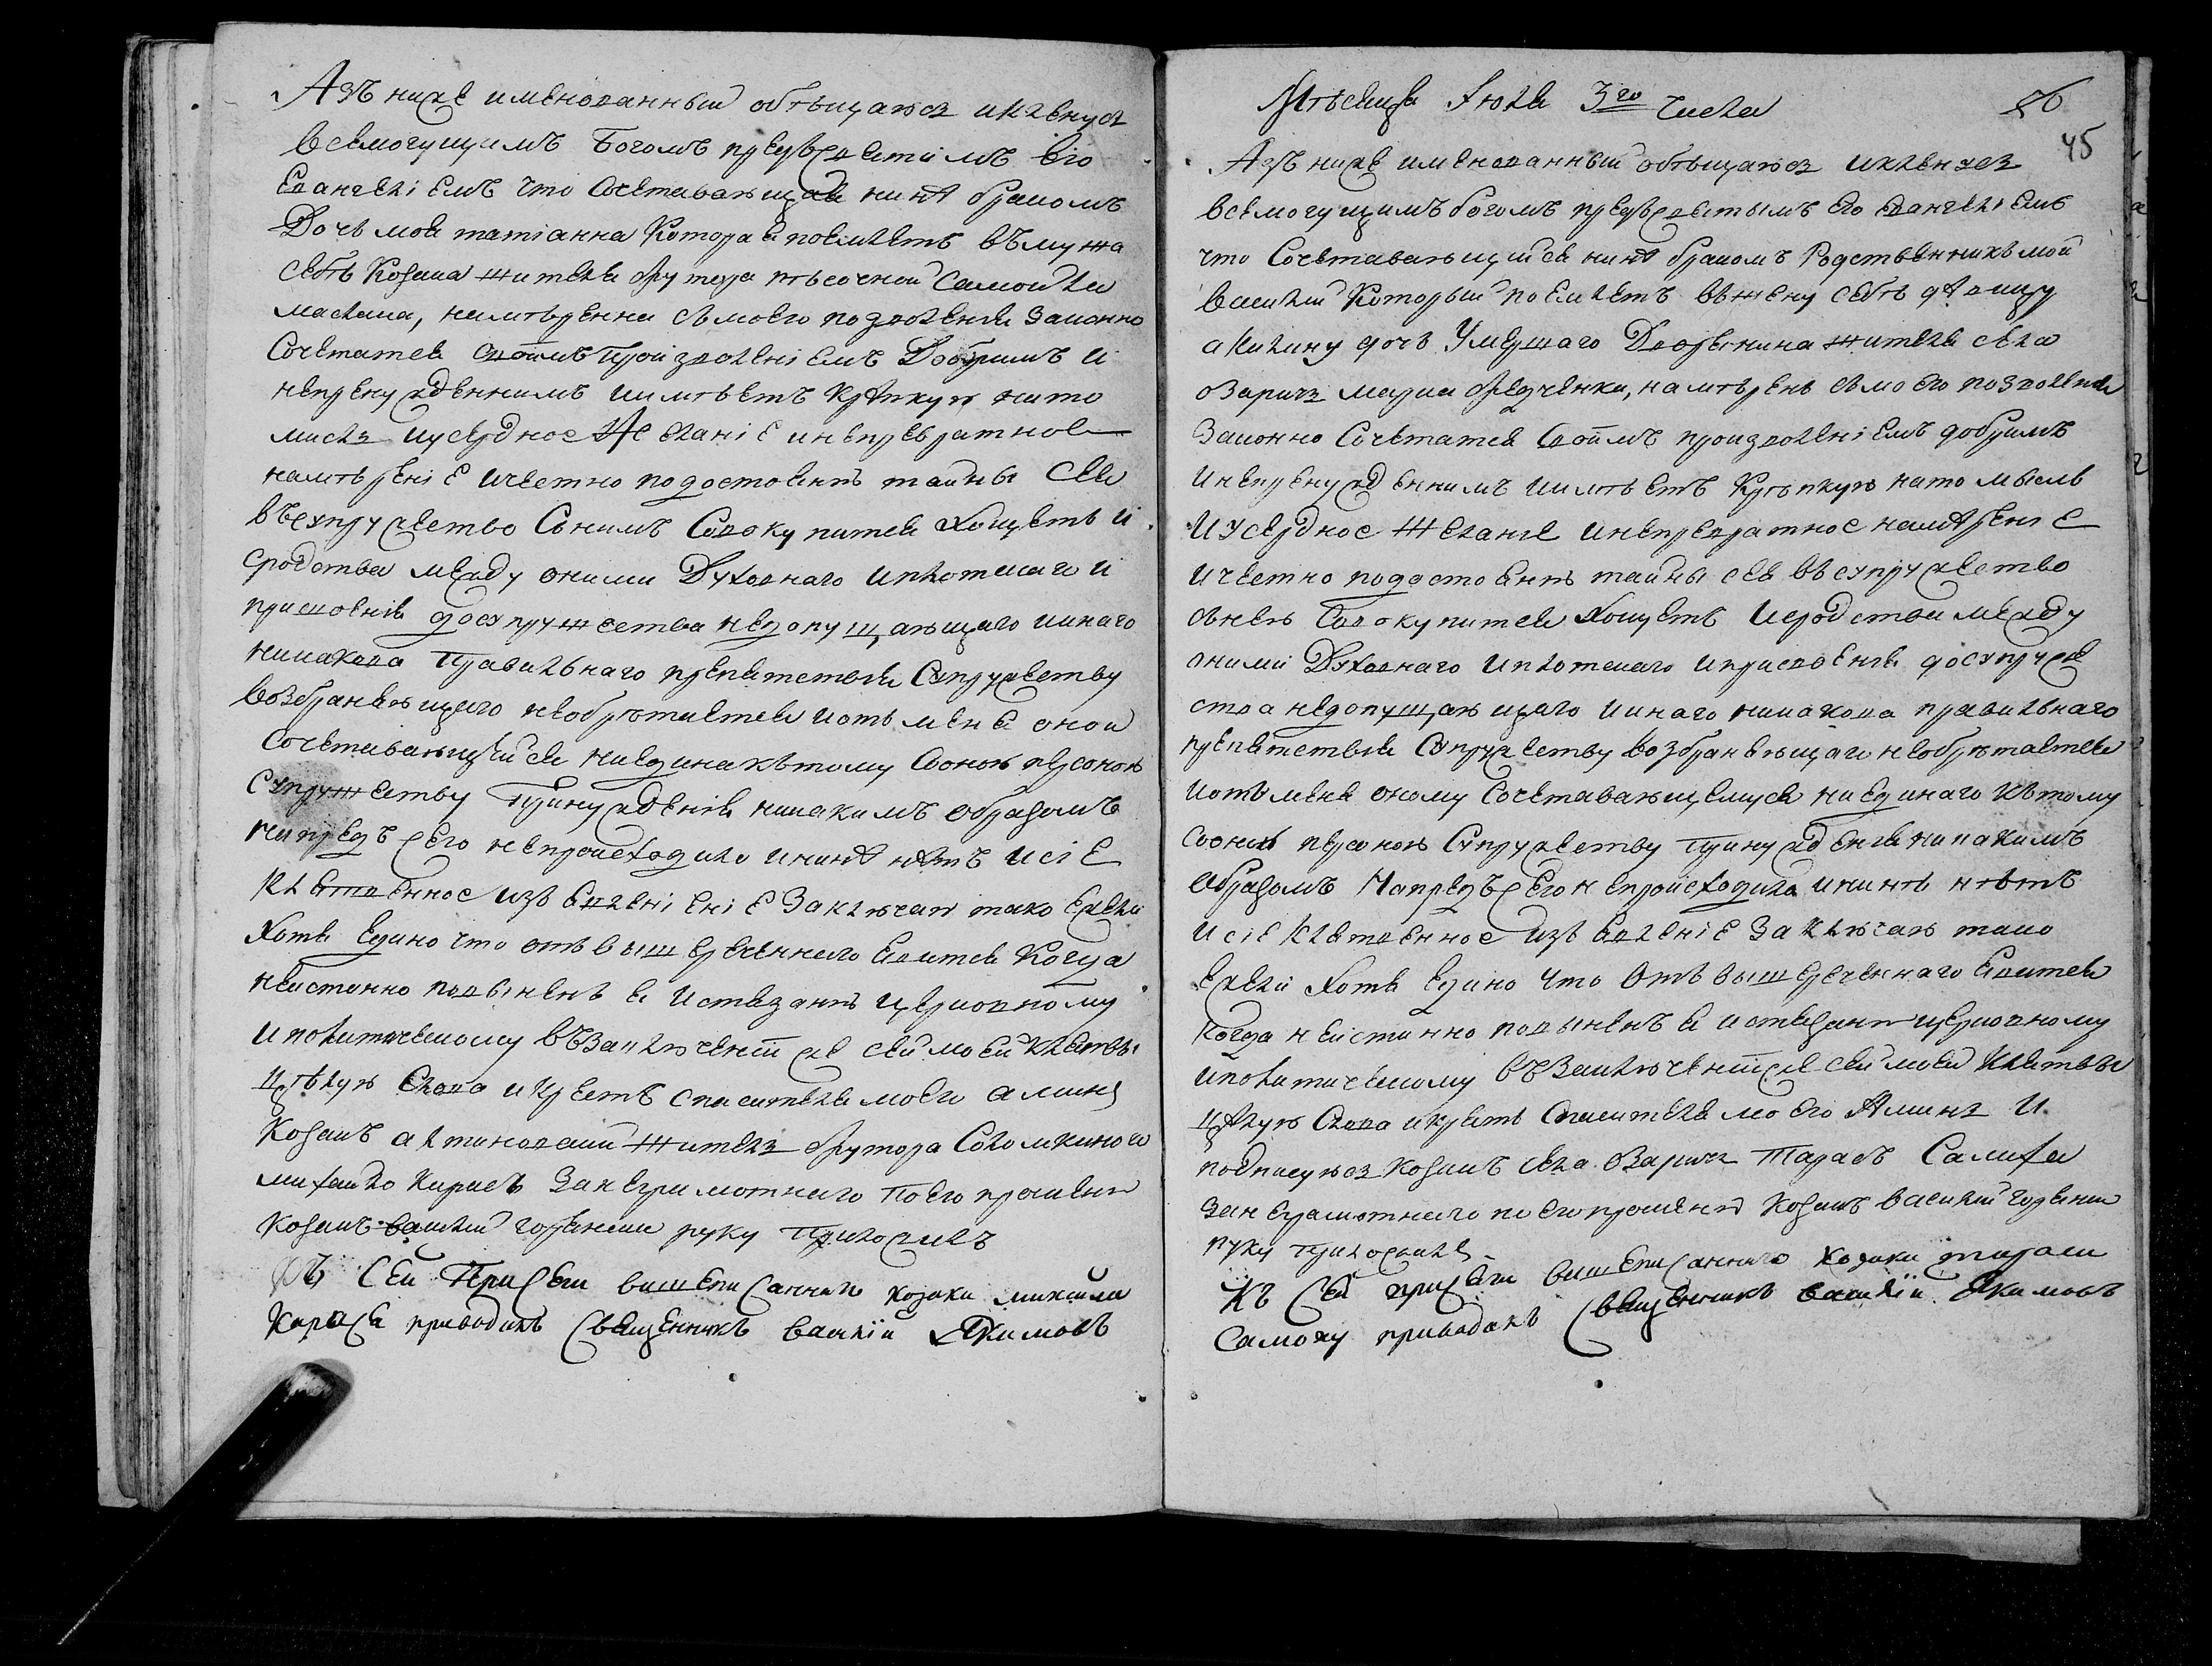 Азъ ниже именованный обѣщаюся и кленуся
всемогущимъ Богомъ предъ святимъ его
Евангелiемъ что сочетавающаяся нинѣ бракомъ
Дочь моя татiанна которая поемлетъ въ мужа
себѣ козака жителя хутора пѣсочной Самойла
маслака, намѣренна съ моего позволенія законно
сочетатся своимъ произволенiемъ Добримъ и
непренужденнимъ и имѣетъ крѣпкую на то
мисль и усердное желанiе и непревратное
намѣренiе и честно подостоянію тайны сея
въ супружество съ нимъ совокупится хощетъ и
сродства между оними Духовнаго и плотскаго и
присвоенія до супружества недопущающаго и инаго
никакова правильнаго препятствія супружеству
возбраняющаго необрѣтается и отъ мене оной
сочетавающейся ни единая къ тому съ оною персоною
супружеству принужденія никакимъ образомъ
напредъ сего непроисходило и нинѣ нѣтъ и сiе
клятвенное изъявленiе заключаю тако ежели
хотя едино что отъ вышереченнаго явится когда
неистинно повыненъ я истязанію церковному
и политическому въ заключенiи же сей моей клятвы
цѣлую слова и крестъ спасителя моего аминь
козакъ житель хутора
михайло Карасъ за неграмотнаго по его прошенію
козакъ василий руку приложилъ
Къ сей Присяги вишеписаннаго козака михаила
Карася приводилъ Священникъ василiй Якимовъ
Мѣсяца Июля 3го числа
45
Азъ ниже именованный обѣщаюся и кленуся
всемогущимъ богомъ предъ святымъ его евангелiемъ
что сочетавающийся нинѣ бракомъ Родственникъ мой
василий который поемлетъ въ жену себѣ дѣвицу
акилину дочь умершаго Дворянина жителя села
Озаричъ марка Федченка, намѣренъ съ моего позволенія
законно сочетатся своимъ произволенiемъ добримъ
и непренужденнимъ и имѣетъ крѣпкую на то мысль
и усердное желанiе и непревратное намѣренiе
и честно подостоянію тайны сея въ супружество
съ нею совокупится хощетъ и сродства между
оними Духовнаго и плотскаго и присвоенія до супруже
ства недопущающаго и инаго никакова правильнаго
препятствія супружеству возбраняющаго необрѣтается
и отъ мене оному сочетавающемуся ни единаго къ тому
съ оною персоною супружеству принужденія никакимъ
образомъ напредъ сего непроисходило и нинѣ нѣтъ
и сiе клятвенное изъявленiе заключаю тако
ежели хотя едино что отъ вышереченнаго явится
когда неистинно повыненъ я истязанію церковному
и политическому въ заключенiи же сей моей клятвы
цѣлую слова и крестъ спасителя моего Аминь и
подписуюся козакъ села Озаричъ Тарасъ Самоха
за неграмотнаго по его прошенію козакъ василий
руку приложилъ
Къ сей присяги вишеписаннаго козака тараса
Самоху приводилъ Священникъ василiй Якимовъ